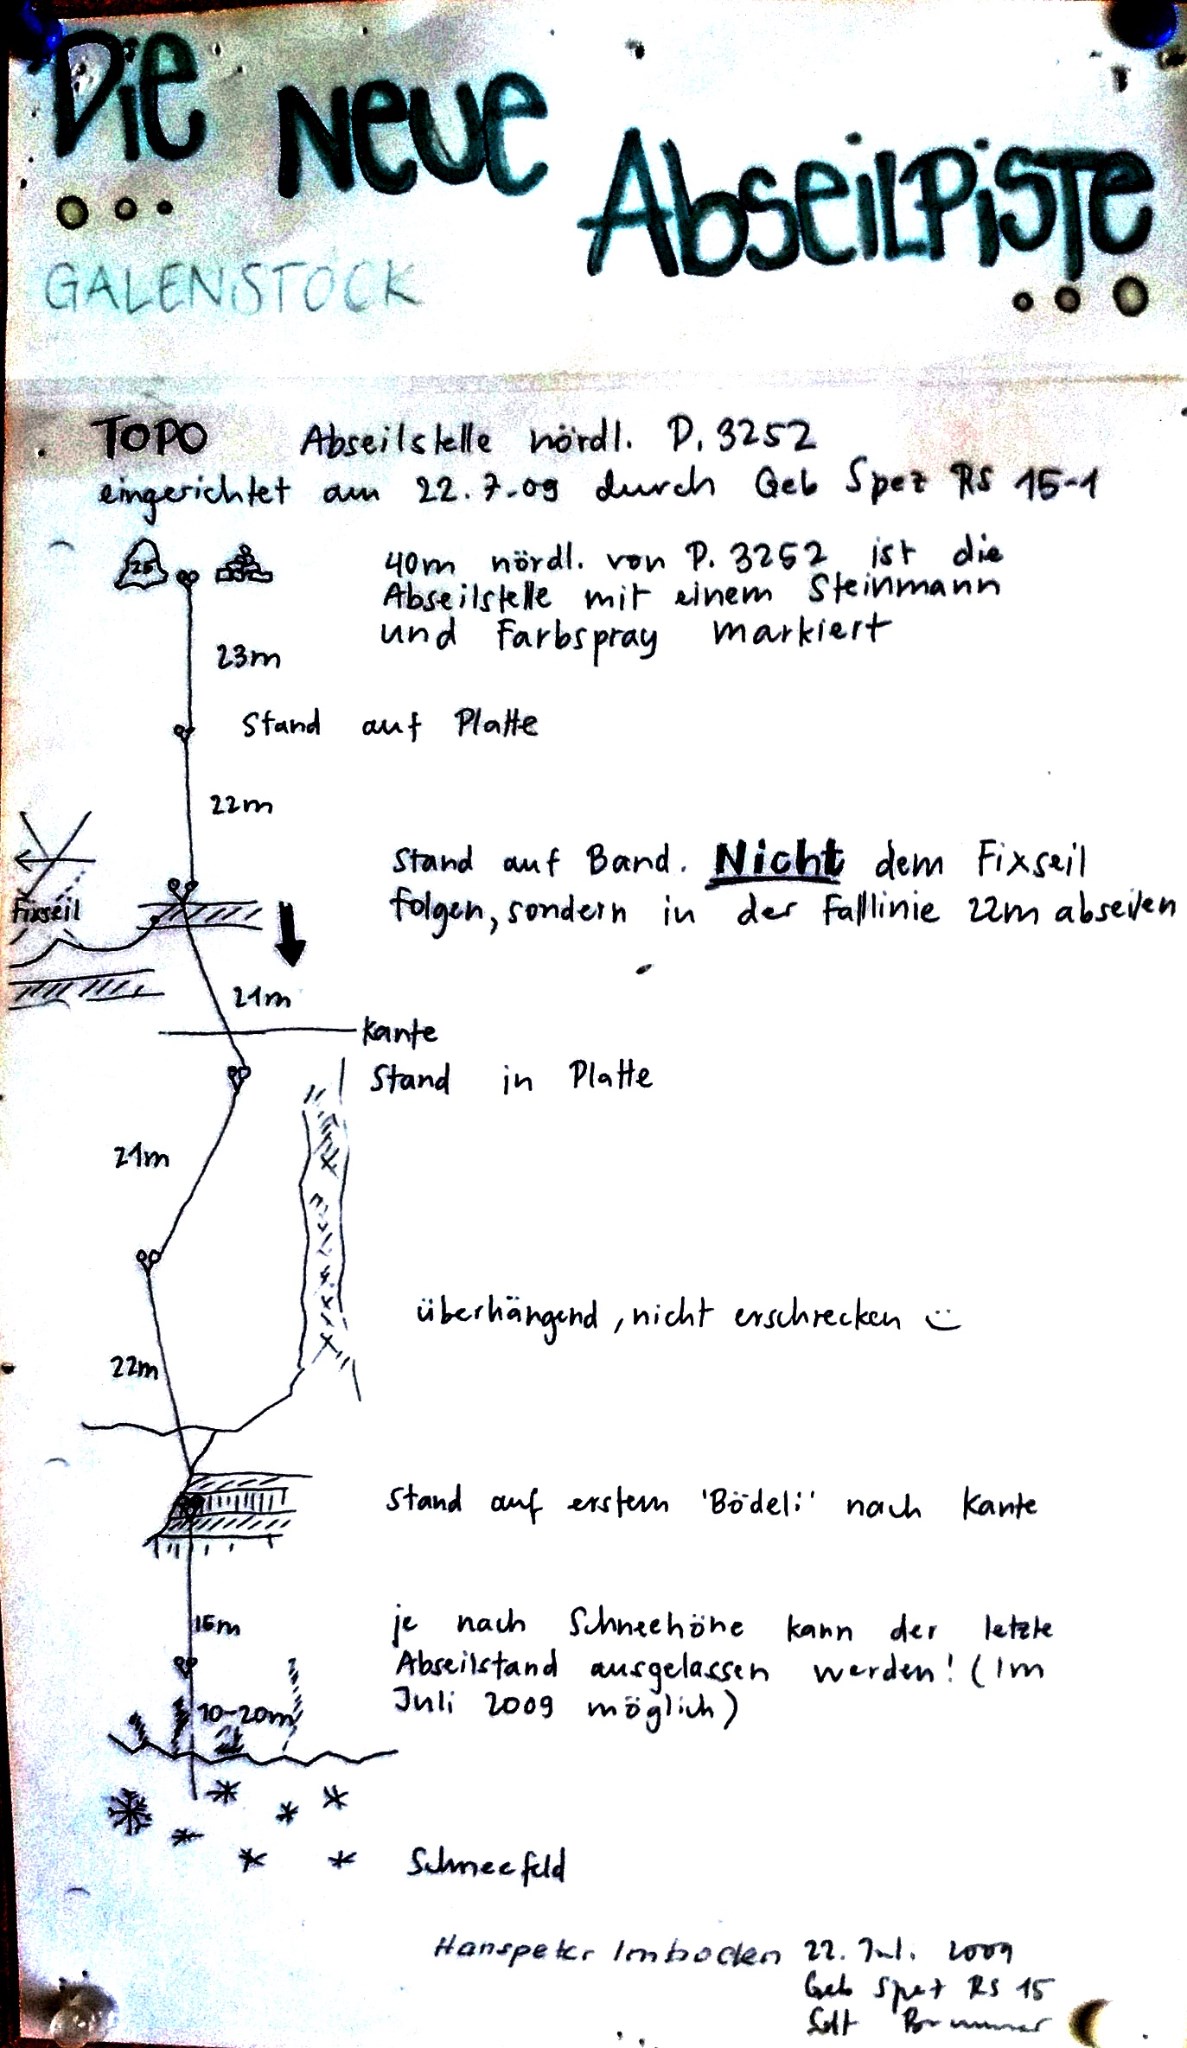 Die Neue
Abseilpiste
GALENSTOCK
TOPO Abseilstelle nördl. P. 3252
eingerichtet am 22.7.09 durch Geb Spez RS 15-1
40m nördl. von P. 3252 ist die
Abseilstelle mit einem Steinmann
und Farbspray markiert
23m
Stand auf Platte
22m
Stand auf Band. Nicht dem Fixseil
folgen, sondern in der Falllinie 22m abseilen
Fixseil
21m
Kante
Stand in Platte
21m
überhängend, nicht erschrecken
22m
Stand auf erstem 'Bödeli' nach Kante
15m
je nach Schneehöhe kann der letzte
Abseilstand ausgelassen werden! (Im
Juli 2009 möglich)
10-20m
Schneefeld
Hanspeter Imboden 22. Jul. 2009
Geb Spez RS 15
Sdt